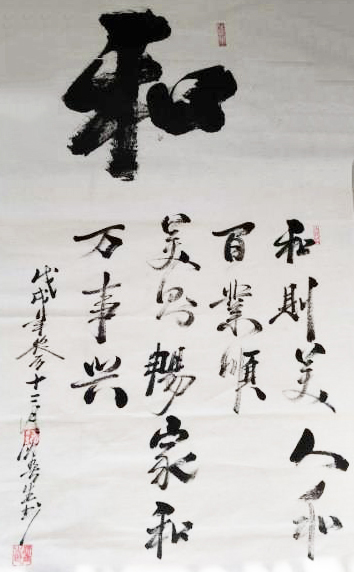 和
和則美人和
百業順
美則暢家和
万事兴
戊戌年 十二月